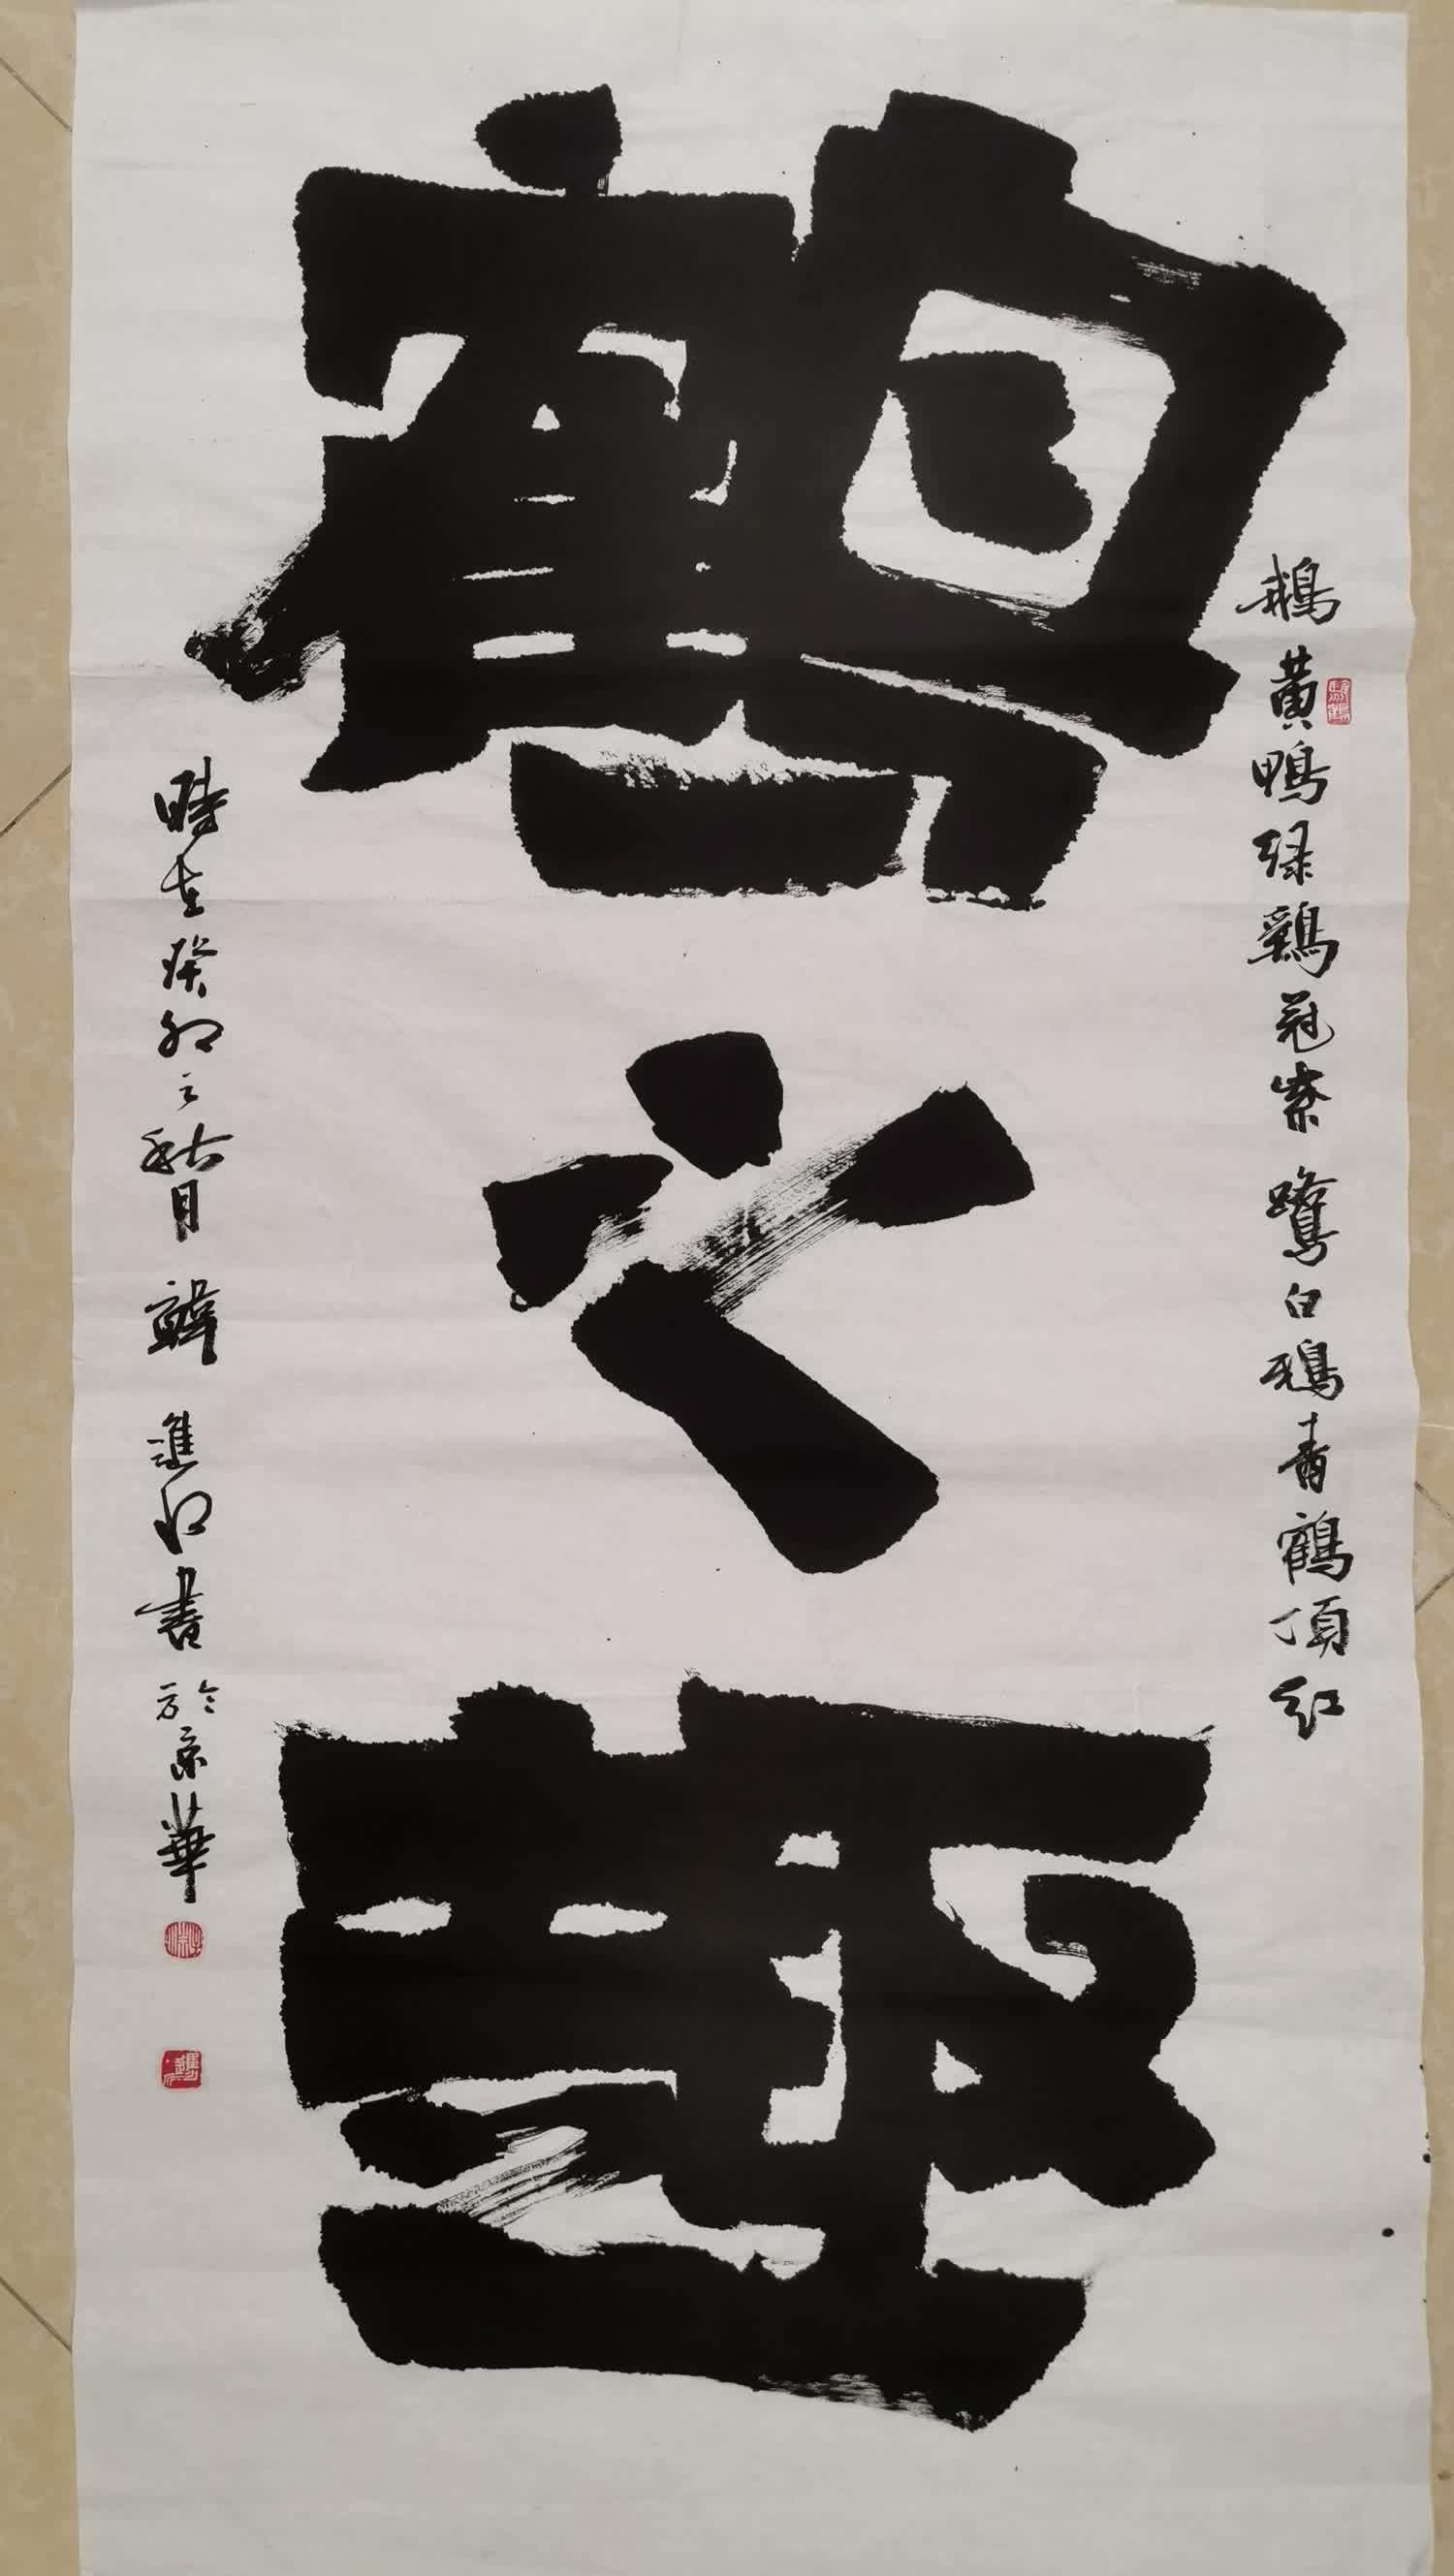 鶴之趣
鵝黃鴨绿鷄冠紫鷺白鴉青鶴頂红
時在癸卯之秙月韓進水書於京華